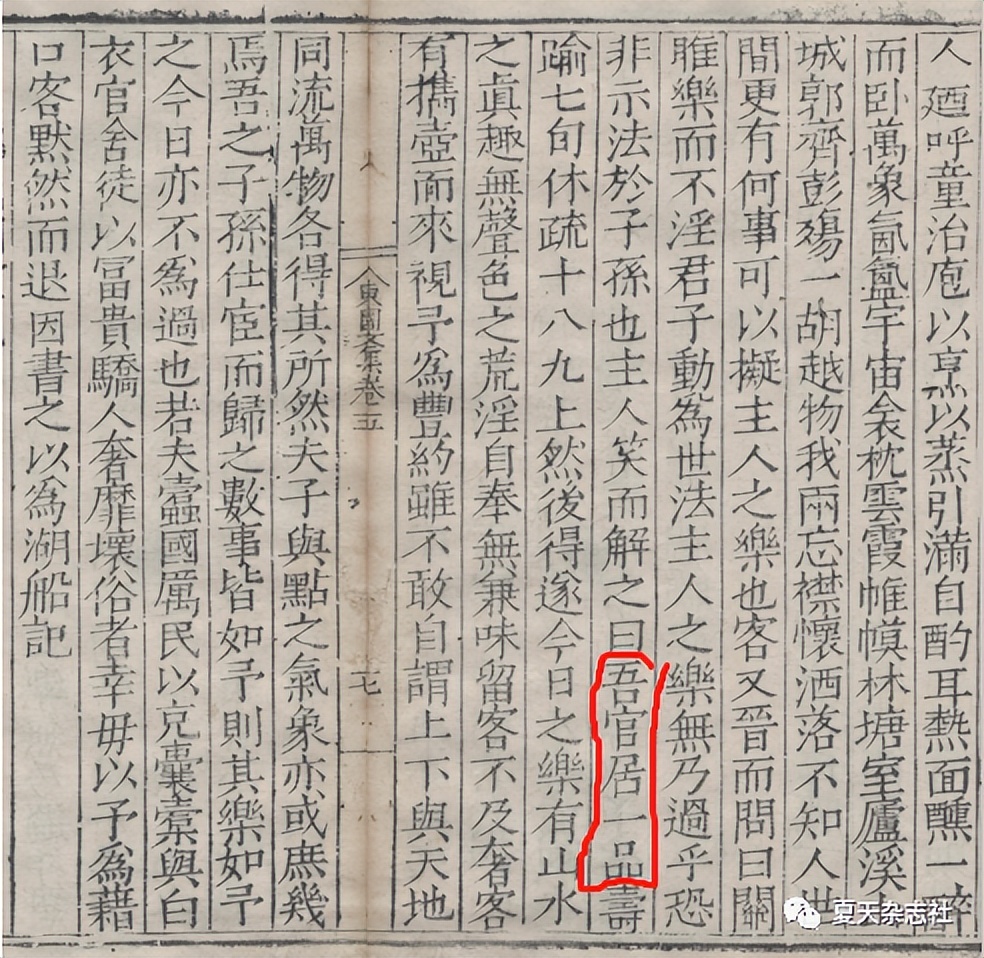 人廼呼童治庖以烹以蒸引滿自酌耳熱面醺一醉
而臥萬象氤氳宇宙衾枕雲霞帷幙林塘室廬溪
城郭齊彭殤一胡越物我兩忘襟懷洒落不知人世
間更有何事可以擬主人之樂也客又晉而問曰關
雎樂而不淫君子動為世法主人之樂無乃過乎恐
非示法於子孫也主人笑而解之曰吾官居一品壽
踰七旬休疏十八九上然後得遂今日之樂有山水
之眞趣無聲色之荒淫自奉無兼味留客不及奢客
有攜壺而來視予爲豐約雖不敢自謂上下與天地
東園文集卷五
七
同流萬物各得其所然夫子與點之氣象亦或庶幾
焉吾之子孫仕宦而歸之數事皆如予則其樂如予
之今日亦不為過也若夫蠹國厲民以克囊橐與白
衣官舍徒以富貴驕人奢靡壞俗者幸毋以予為藉
口客默然而退因書之以為湖船記
夏天杂志社